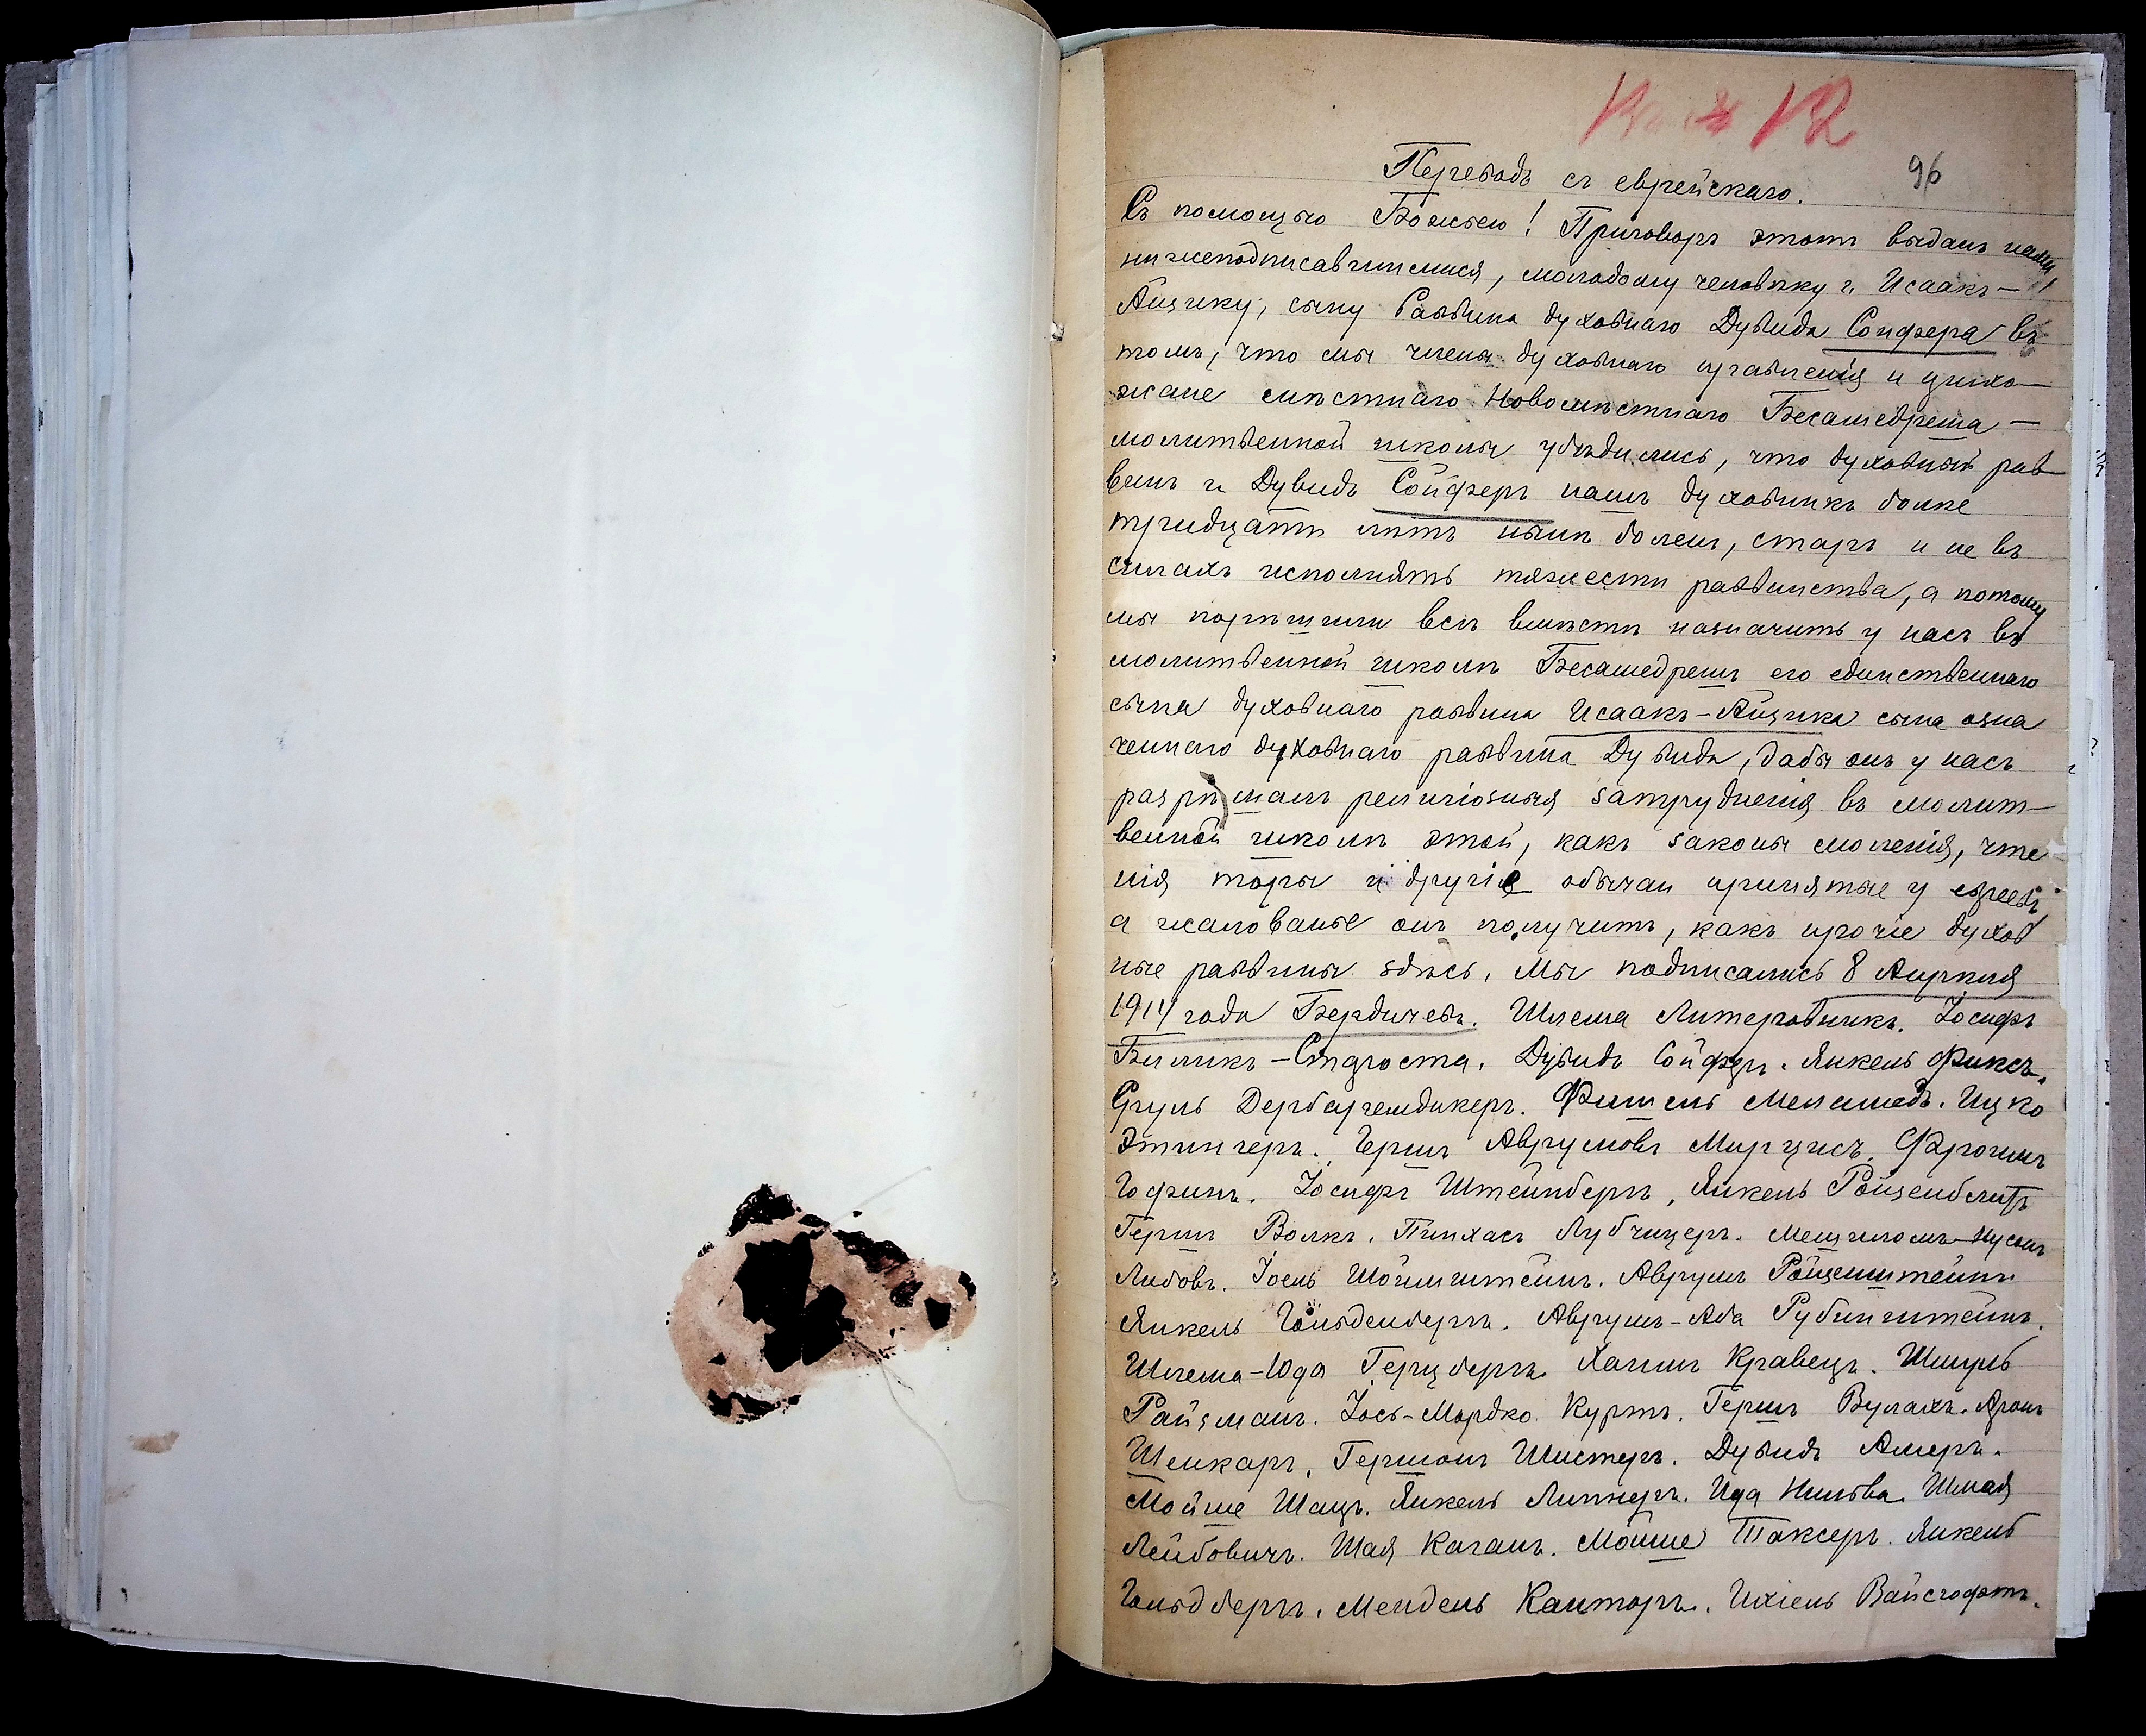 96
Переводъ съ еврейскаго.
Съ помощью Божьею! Приговоръ этотъ выданъ нами
нижеподписавшимися, молодому человѣку г. Исаакъ-
Айзику, сыну Раввина духовнаго Дувида Сойфера въ
томъ, что мы члены духовнаго правленія и прихо-
жане мѣстнаго Новомѣстнаго Бесамедреша -
молитвенной школы убѣдились, что духовный рав
винъ г. Дувидъ Сойферъ нашъ духовникъ болѣе
тридцати лѣтъ нынѣ боленъ, старъ и не въ
силахъ исполнять тяжести раввинства, а потому
мы порѣшили всѣ вмѣстѣ назначить у насъ въ
молитвенной школѣ Бесамедрешъ его единственнаго
сына духовнаго раввина Исаакъ-Айзика сына озна
ченнаго духовнаго раввина Дувида, дабы онъ у насъ
разрѣшалъ религіозныя затрудненія въ молит-
венной школѣ этой, какъ законы моленія, чте
нія торы и другіе обычаи принятые у евреевъ,
а жалованье онъ получитъ, какъ прочіе духов
ные раввины здѣсь. Мы подписались 8 Апрѣля
1914 года Бердичевъ. Шлема Литеровникъ. Іосифъ
Биликъ-Староста. Дувидъ Сойферъ. Янкель Фиксъ.
Сруль Дербаремдикеръ. Фишель Меламедъ. Ицко
Этингеръ. Гершъ Аврумовъ Миргисъ. Фроимъ
Гофманъ. Іосифъ Штейнбергъ, Янкель Ройзенблитъ
Гершъ Волкъ. Пинхасъ Лубчицеръ. Мешилемъ-Нусонъ
Либовъ. Іоель Шойлштейнъ. Аврумъ Ройзенштейнъ.
Янкель Гольденбергъ. Аврумъ-Аба Рубинштейнъ.
Шлема-Юда Герцбергъ. Хаимъ Кравецъ. Шмуль
Райзманъ. Іось-Мордко Куртъ. Гершъ Вулахъ. Аронъ
Шенкаръ. Гершонъ Шистеръ. Дувидъ Амеръ.
Мойше Шацъ. Янкель Липнеръ. Шмая
Лейбовичъ. Шая Каганъ. Мойше Таксеръ. Янкель
Гольдбергъ. Мендель Канторъ. Ихіель Вайсгофтъ.